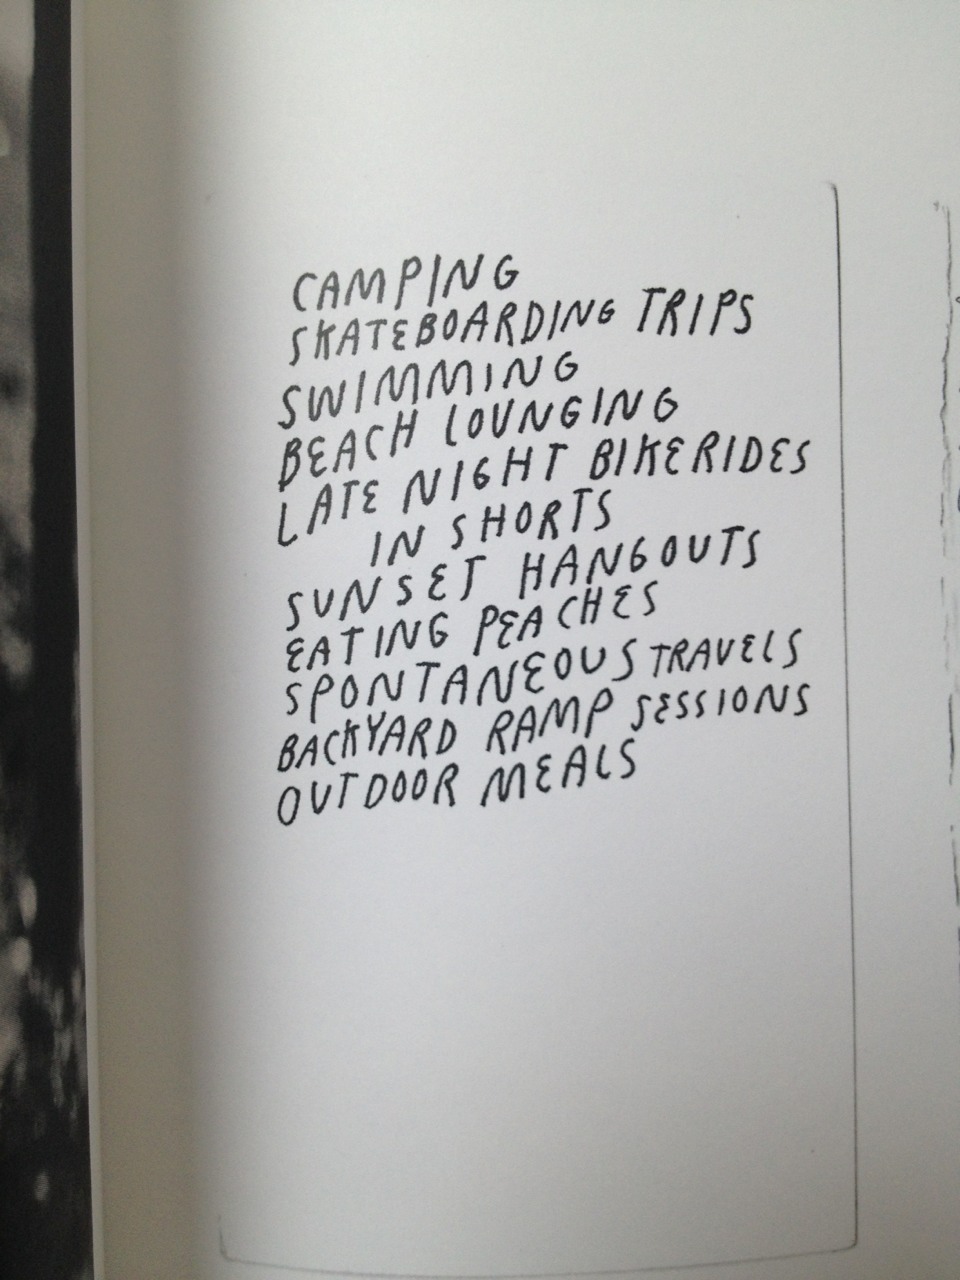 CAMPING
SKATEBOARDING TRIPS
SWIMMING
BEACH LOUNGING
LATE NIGHT BIKERIDES
IN SHORTS
SUNSET HANGOUTS
EATING PEACHES
SPONTANEOUS TRAVELS
BACKYARD RAMP SESSIONS
OUTDOOR MEALS